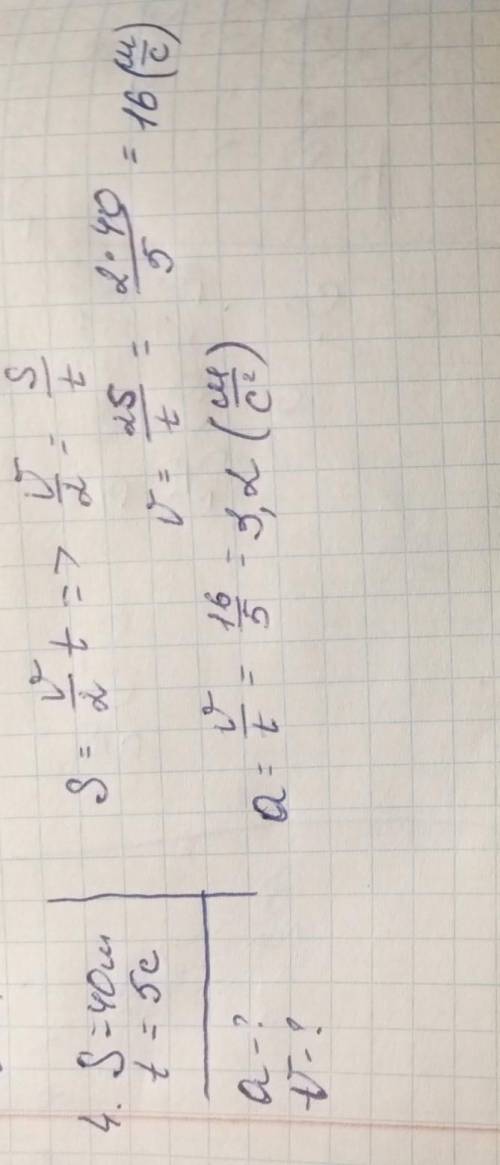 4. S = 40м
t = 5с
a - ?
v - ?
S = v/2 t => v/2 = S/t
v = 2S/t = 2·40/5 = 16 (м/с)
a = v/t = 16/5 = 3,2 (м/с²)